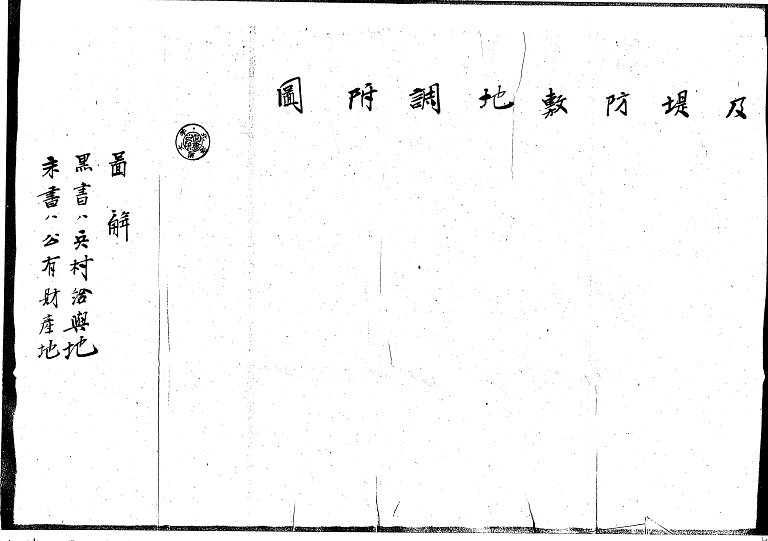 及堤防敷地調附圖
圖解
黒書ハ兵村給與地
朱書ハ公有財産地